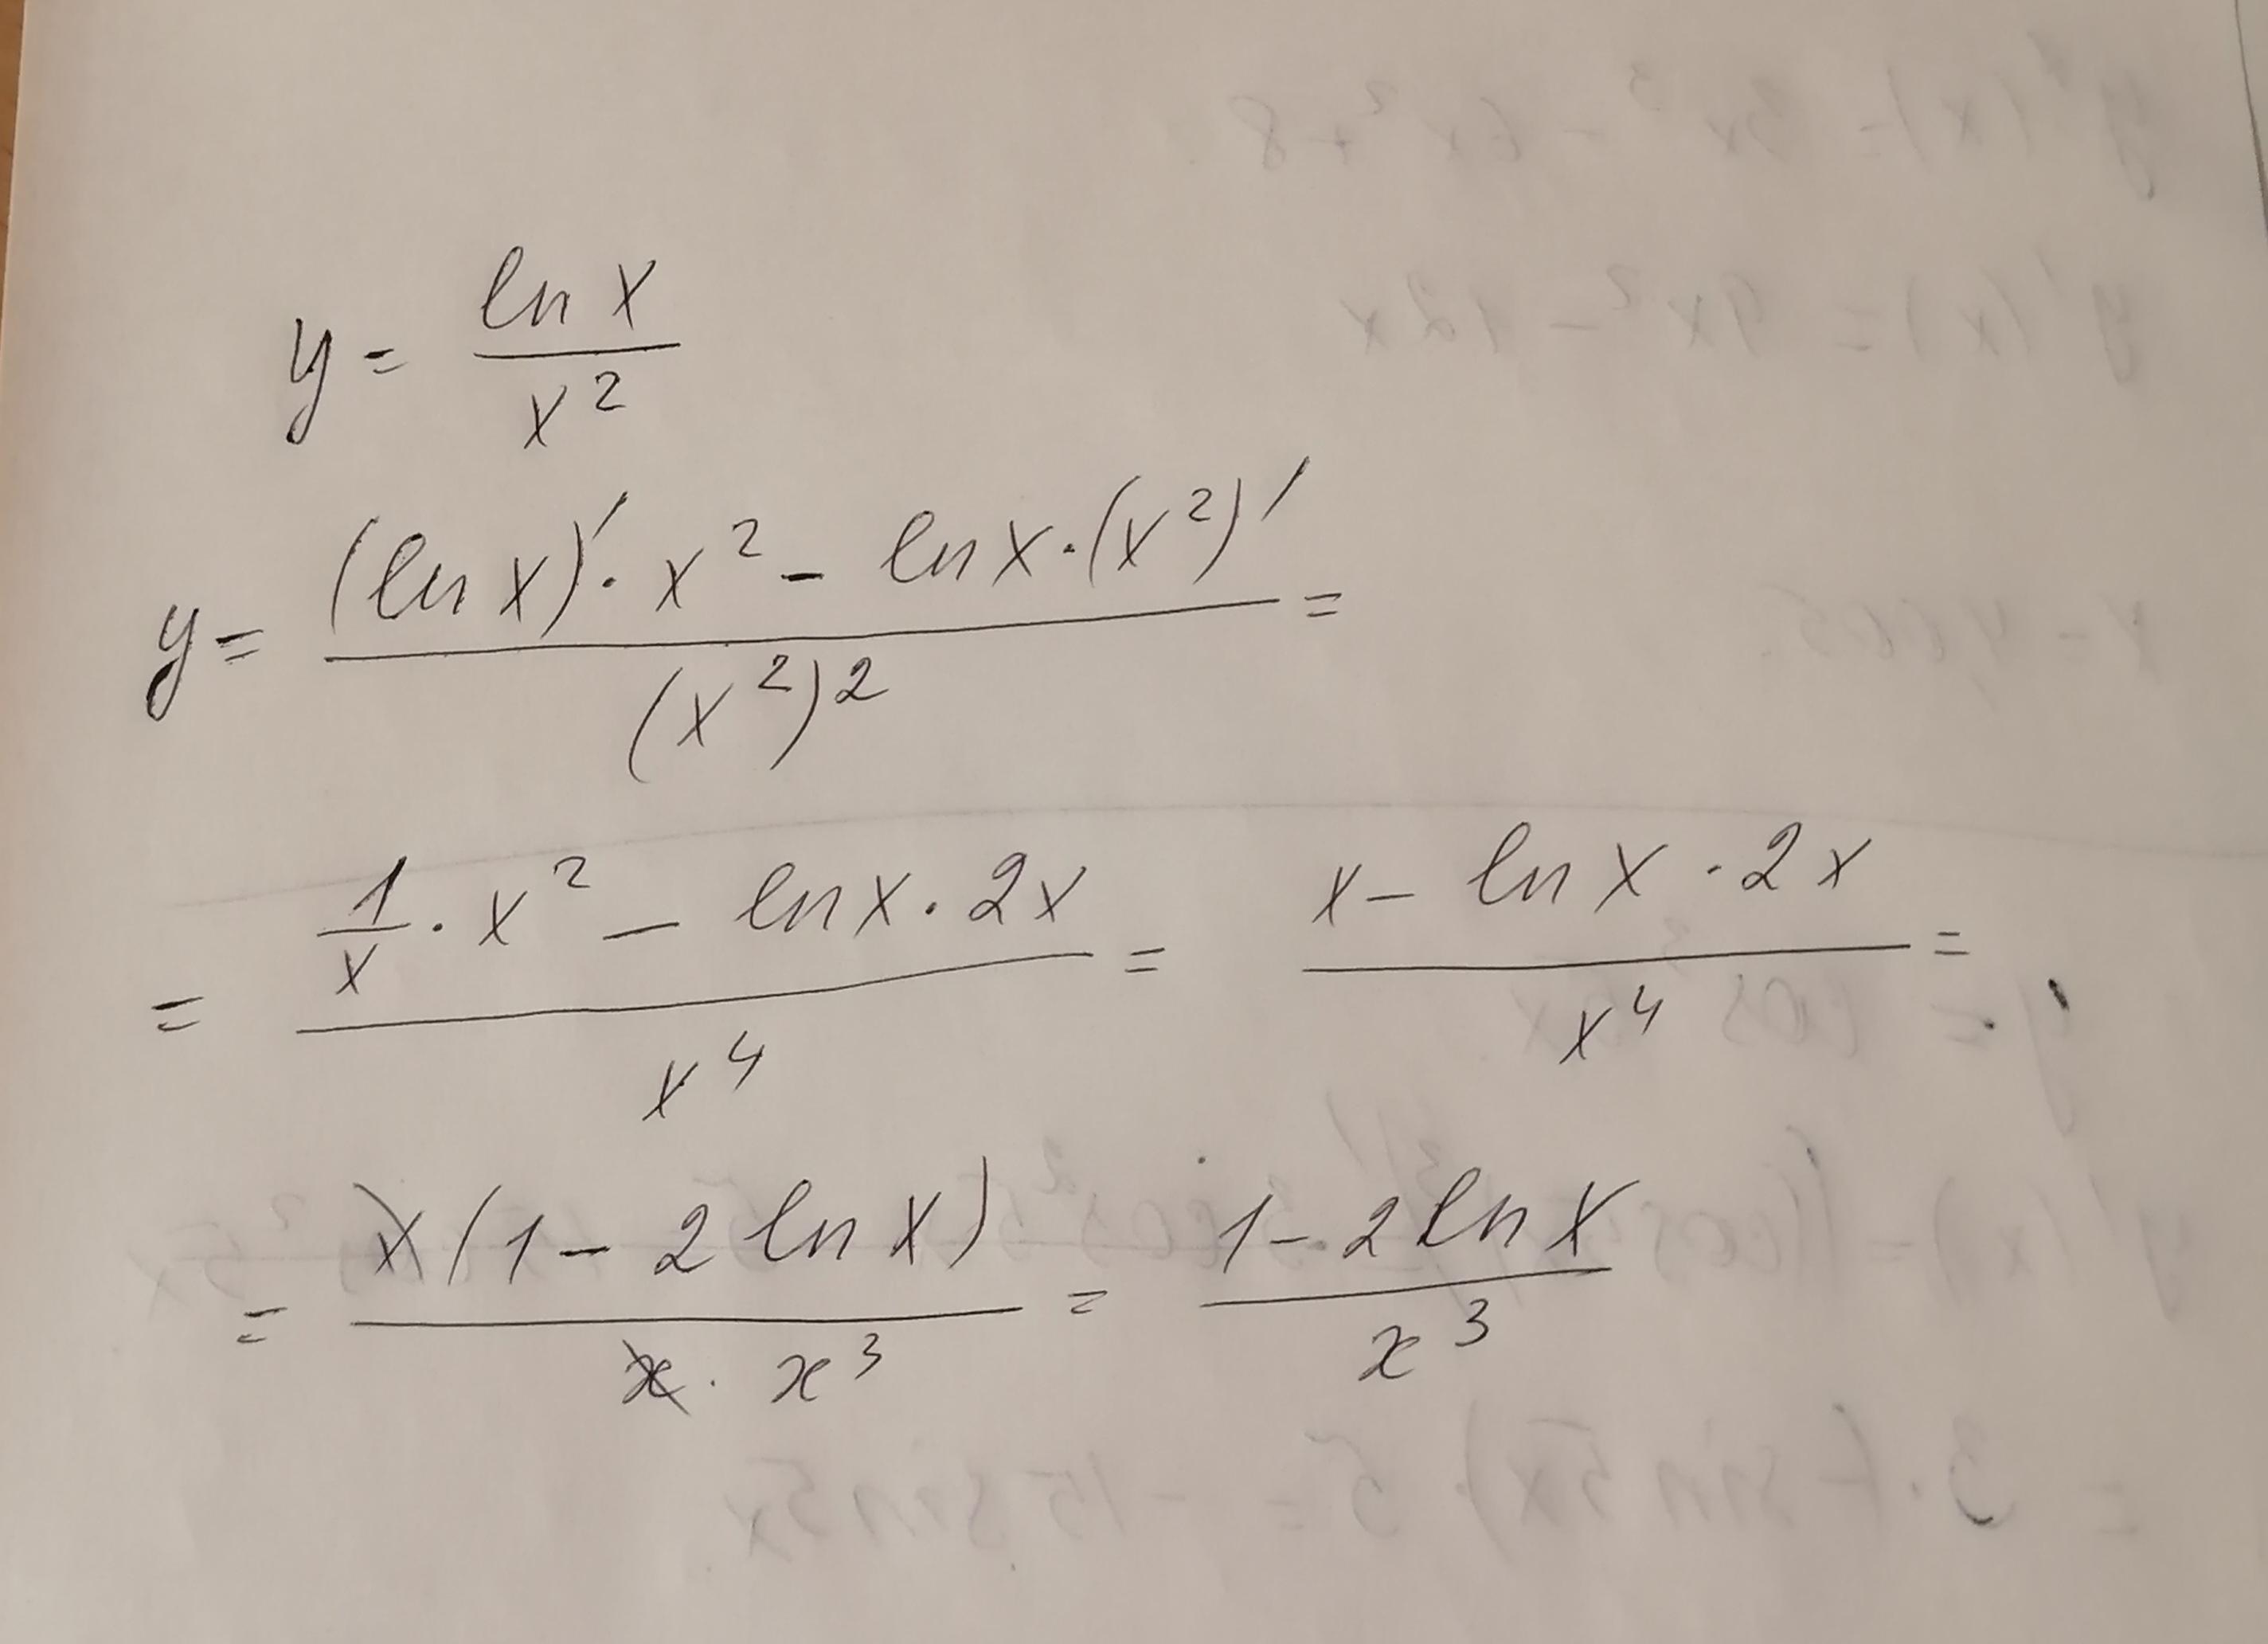 y = ln x / x²
y = (ln x)' · x² - ln x · (x²)' / (x²)² =
= 1/x · x² - ln x · 2x / x⁴ = x - ln x · 2x / x⁴ =
= x(1 - 2 ln x) / x · x³ = 1 - 2 ln x / x³